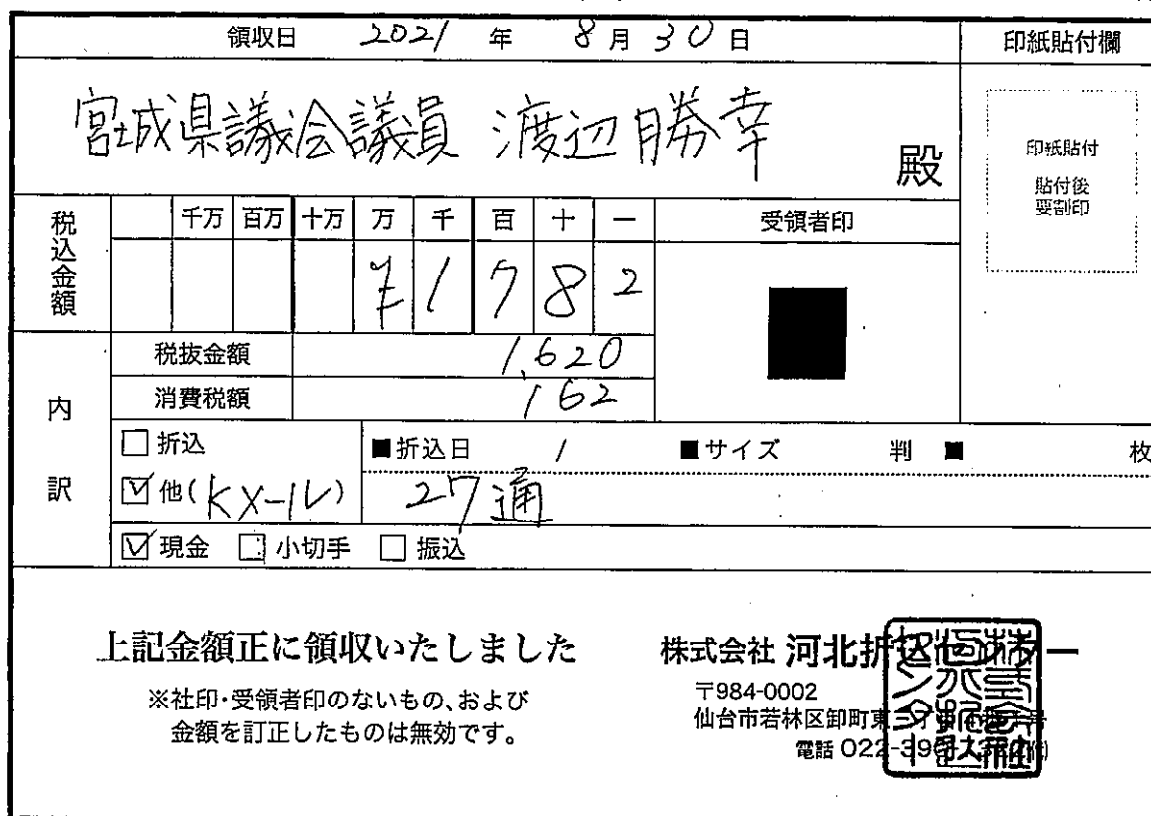 領収日 2021 年 8 月 30 日
印紙貼付欄
宮城県議会議員 渡辺勝幸 殿
印紙貼付
貼付後
要割印
税込金額
千万 百万 十万 万 千 百 十 一
受領者印
¥1782
内訳
税抜金額 1,620
消費税額 162
□折込 ■折込日 / ■サイズ 判 ■ 枚
☑他(メール) 27通
☑現金 □小切手 □振込
上記金額正に領収いたしました
※社印・受領者印のないもの、および
金額を訂正したものは無効です。
株式会社 河北折込センター
〒984-0002
仙台市若林区卸町東
電話 022-39
株式会社
河北折込
センター